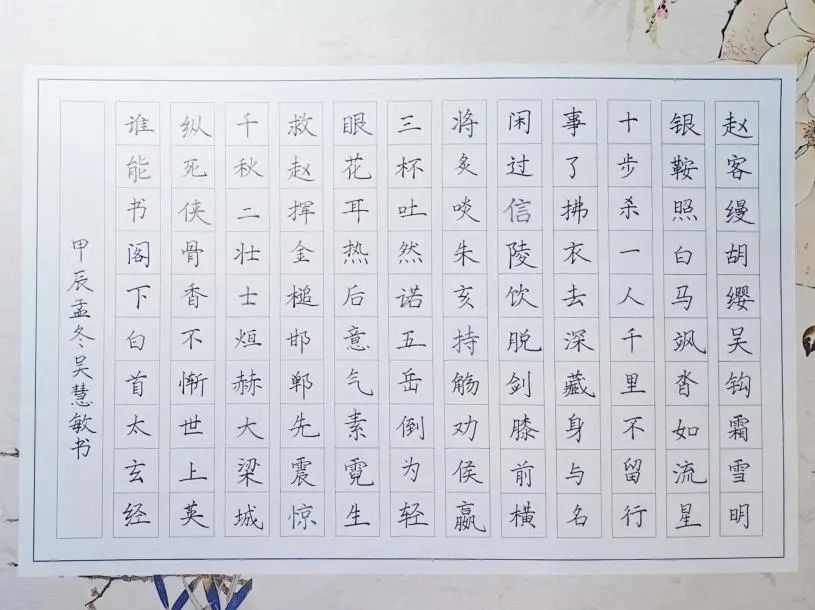 赵客缦胡缨吴钩霜雪明
银鞍照白马飒沓如流星
十步杀一人千里不留行
事了拂衣去深藏身与名
闲过信陵饮脱剑膝前横
将炙啖朱亥持觞劝侯嬴
三杯吐然诺五岳倒为轻
眼花耳热后意气素霓生
救赵挥金槌邯郸先震惊
千秋二壮士烜赫大梁城
纵死侠骨香不惭世上英
谁能书阁下白首太玄经
甲辰孟冬吴慧敏书